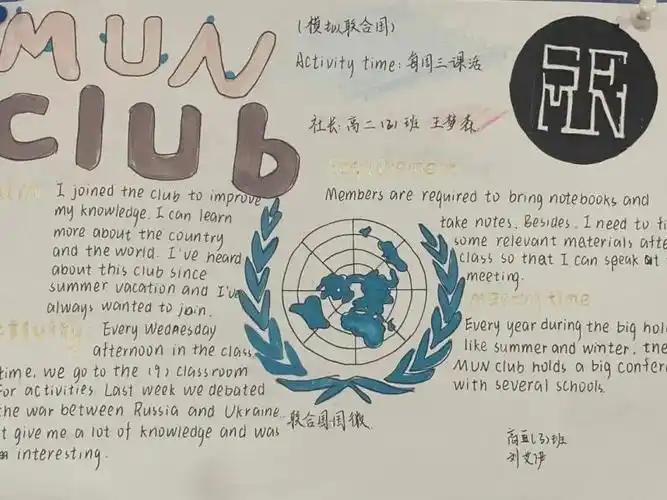 MUN
club
(模拟联合国)
Activity time: 每周三课活
社长: 高二(3)班 王梦森
SF
MUN
I joined the club to improve
my knowledge. I can learn
more about the country
and the world. I've heard
about this club since
summer vacation and I've
always wanted to join.
Activity
Every Wednesday
afternoon in the class
time, we go to the (9) classroom
For activities. Last week we debated
the war between Russia and Ukraine.
t give me a lot of knowledge and was
interesting.
requirement
Members are required to bring notebooks and
take notes. Besides, I need to fi
some relevant materials afte
class so that I can speak at
meeting.
meeting time
Every year during the big hol
like summer and winter, the
MUN club holds a big confere
with several schools.
联合国国徽